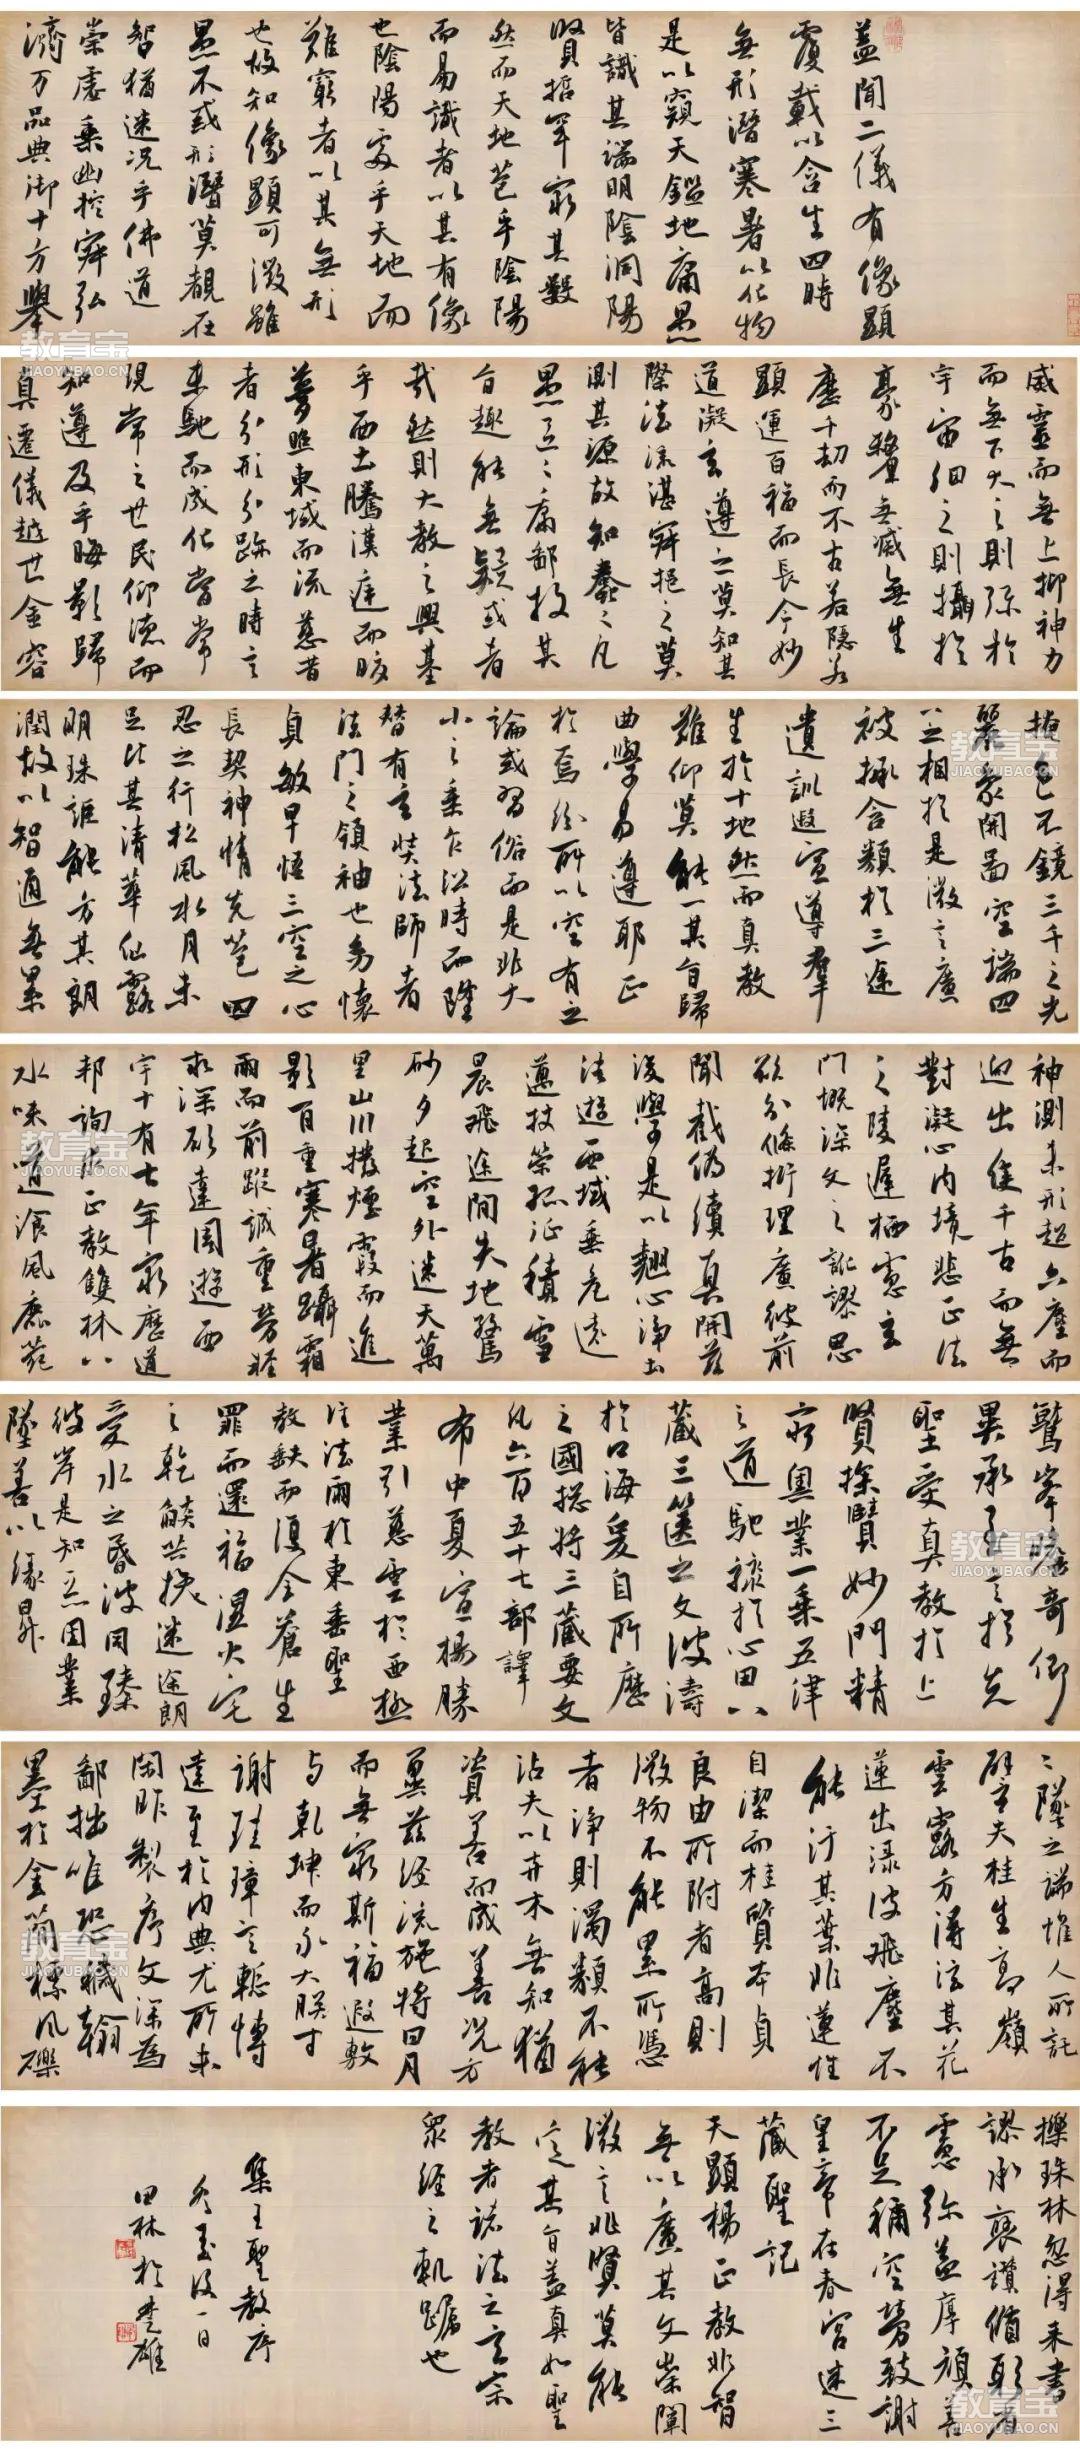 盖聞二儀有像顯
覆載以含生四時
無形潛寒暑以化物
是以窺天鑑地庸愚
皆識其端明陰洞陽
賢哲罕窮其數
然而天地苞乎陰陽
而易識者以其有像
也陰陽處乎天地而
難窮者以其無形
也故知像顯可徵雖
愚不惑形潛莫覩在
智猶迷況乎佛道
崇虛乘幽控寂弘
濟万品典御十方舉
威靈而無上抑神力
而無下大之則弥於
宇宙細之則攝於
豪釐無滅無生
歷千劫而不古若隱若
顯運百福而長今妙
道凝玄遵之莫知其
際法流湛寂挹之莫
測其源故知蠢之凡
愚區之庸鄙投其
旨趣能無疑或者
哉然則大教之興基
乎西土騰漢庭而皎
夢照東域而流慈昔
者分形分跡之時言
未馳而成化當常
現常之世民仰德而
知遵及乎晦影歸
真遷儀越世金容
掩色不鏡三千之光
麗象開圖空端四
八之相於是微言廣
被拯含類於三途
遺訓遐宣導群
生於十地然而真教
難仰莫能一其旨歸
曲學易遵耶正
於焉紛所以空有之
論或習俗而是非大
小之乘乍沿時而隆
替有玄奘法師者
法門之領袖也幼懷
貞敏早悟三空之心
長契神情先苞四
忍之行松風水月未
足比其清華仙露
明珠詎能方其朗
潤故以智通無累
神測未形超六塵而
迥出隻千古而無
對凝心內境悲正法
之陵遲栖慮玄
門慨深文之訛謬思
欲分條析理廣彼前
聞截偽續真開茲
後學是以翹心淨土
法遊西域乘危遠
邁杖策孤征積雪
晨飛途間失地驚
砂夕起空外迷天萬
里山川撥煙霞而進
影百重寒暑躡霜
雨而前蹤誠重勞輕
求深願達周遊西
宇十有七年窮歷道
邦詢求正教雙林八
水味道飡風鹿菀
鷲峯瞻奇仰
異承至言於先
聖受真教於上
賢探賾妙門精
窮奧業一乘五律
之道馳驟於心田八
藏三篋之文波濤
於口海爰自所歷
之國總將三藏要文
凡六百五十七部譯
布中夏宣揚勝
業引慈雲於西極
注法雨於東垂聖
教缺而復全蒼生
罪而還福濕火宅
之乾燄共拔迷途朗
愛水之昏波同臻
彼岸是知惡因業
墜善以緣昇
之墜之端惟人所託
譬夫桂生高嶺
雲露方得泫其花
蓮出淥波飛塵不
能汙其葉非蓮性
自潔而桂質本貞
良由所附者高則
微物不能累所憑
者淨則濁類不能
沾夫以卉木無知猶
資善而成善況方
冀茲經流施將日月
而無窮斯福遐敷
与乾坤而永大朕才
謝珪璋言慙博
達至於內典尤所未
閑昨製序文深為
鄙拙唯恐穢翰
墨於金簡標瓦礫
於珠林忽得來書
謬承褒讚循躬省
慮弥益厚顏善
不足稱空勞致謝
皇帝在春宮述三
藏聖記
天顯揚正教非智
無以廣其文崇闡
微言非賢莫能
定其旨蓋真如聖
教者諸法之玄宗
眾經之軌躅也
集王聖教序
田林於楚雄
教育宝
JIAOYUBAO.CN